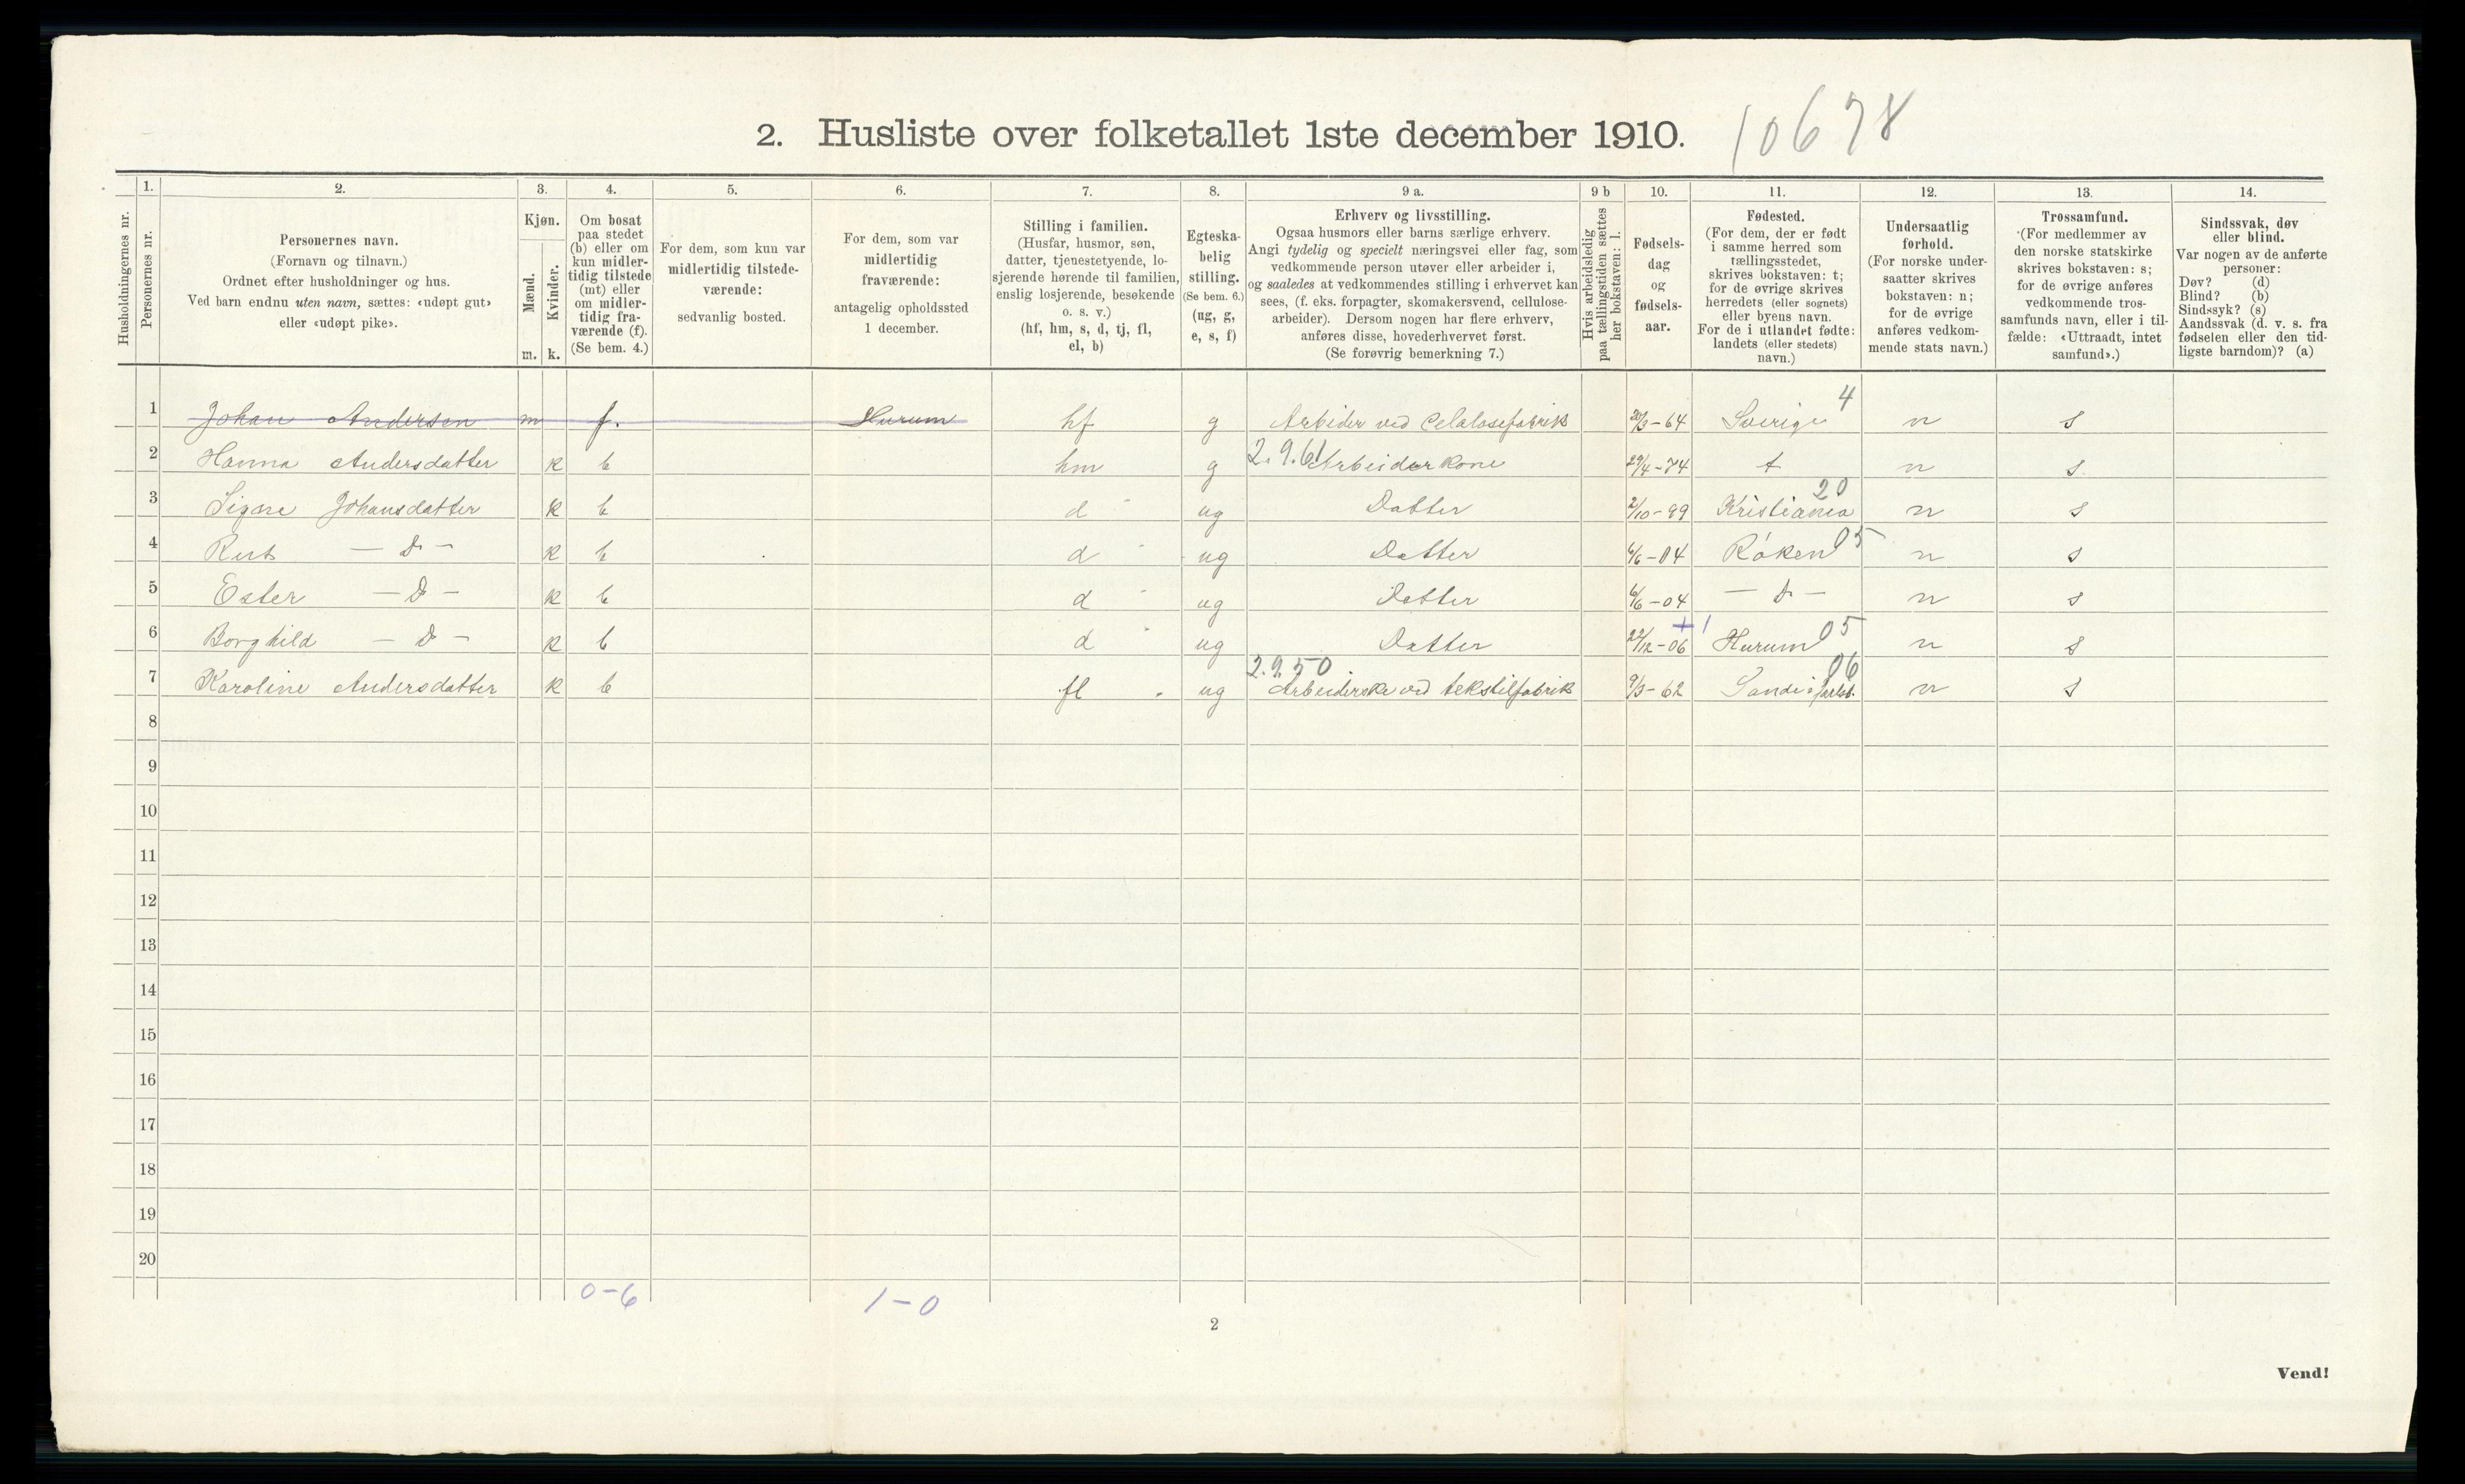 2. Husliste over folketallet 1ste december 1910. 10678
Husholdningernes nr.
1. Personernes nr.
2. Personernes navn.
(Fornavn og tilnavn.)
Ordnet efter husholdninger og hus.
Ved barn endnu uten navn, sættes: «udøpt gut»
eller «udøpt pike».
3. Kjøn.
Mænd. m.
Kvinder. k.
4. Om bosat
paa stedet
(b) eller om
kun midler-
tidig tilstede
(mt) eller
om midler-
tidig fra-
værende (f).
(Se bem. 4.)
5. For dem, som kun var
midlertidig tilstede-
værende:
sedvanlig bosted.
6. For dem, som var
midlertidig
fraværende:
antagelig opholdssted
1 december.
7. Stilling i familien.
(Husfar, husmor, søn,
datter, tjenestetyende, lo-
sjerende hørende til familien,
enslig losjerende, besøkende
o. s. v.)
(hf, hm, s, d, tj, fl,
el, b)
8. Egteska-
belig
stilling.
(Se bem. 6.)
(ug, g,
e, s, f)
9 a. Erhverv og livsstilling.
Ogsaa husmors eller barns særlige erhverv.
Angi tydelig og specielt næringsvei eller fag, som
vedkommende person utøver eller arbeider i,
og saaledes at vedkommendes stilling i erhvervet kan
sees, (f. eks. forpagter, skomakersvend, cellulose-
arbeider). Dersom nogen har flere erhverv,
anføres disse, hovederhvervet først.
(Se forøvrig bemerkning 7.)
9 b Hvis arbeidsledig
paa tællingstiden sættes
her bokstaven: l.
10. Fødsels-
dag
og
fødsels-
aar.
11. Fødested.
(For dem, der er født
i samme herred som
tællingsstedet,
skrives bokstaven: t;
for de øvrige skrives
herredets (eller sognets)
eller byens navn.
For de i utlandet fødte:
landets (eller stedets)
navn.)
12. Undersaatlig
forhold.
(For norske under-
saatter skrives
bokstaven: n;
for de øvrige
anføres vedkom-
mende stats navn.)
13. Trossamfund.
(For medlemmer av
den norske statskirke
skrives bokstaven: s;
for de øvrige anføres
vedkommende tros-
samfunds navn, eller i til-
fælde: «Uttraadt, intet
samfund».)
14. Sindssvak, døv
eller blind.
Var nogen av de anførte
personer:
Døv? (d)
Blind? (b)
Sindssyk? (s)
Aandssvak (d. v. s. fra
fødselen eller den tid-
ligste barndom)? (a)
1 Johan Andersen m f. Hurum hf g Arbeider ved Celulosefabrik 20/3-64 Sverige 4 n s
2 Hanna Andersdatter k b hm g 2.9.61 Arbeiderkone 29/4-74 t n s
3 Signe Johansdatter k b d ug Datter 2/10-99 Kristiania 20 n s
4 Rut — D — k b d ug Datter 6/6-04 Røken 05 n s
5 Ester — D — k b d ug Datter 6/6-04 — D — n s
6 Borghild — D — k b d ug Datter 22/12-06 + 1 Hurum 05 n s
7 Karoline Andersdatter k b fl ug 2.9.50 Arbeiderske ved tekstilfabrik 9/3-62 Sande i Jarlsb. 06 n s
8
9
10
11
12
13
14
15
16
17
18
19
20
0-6 1-0
2
Vend!